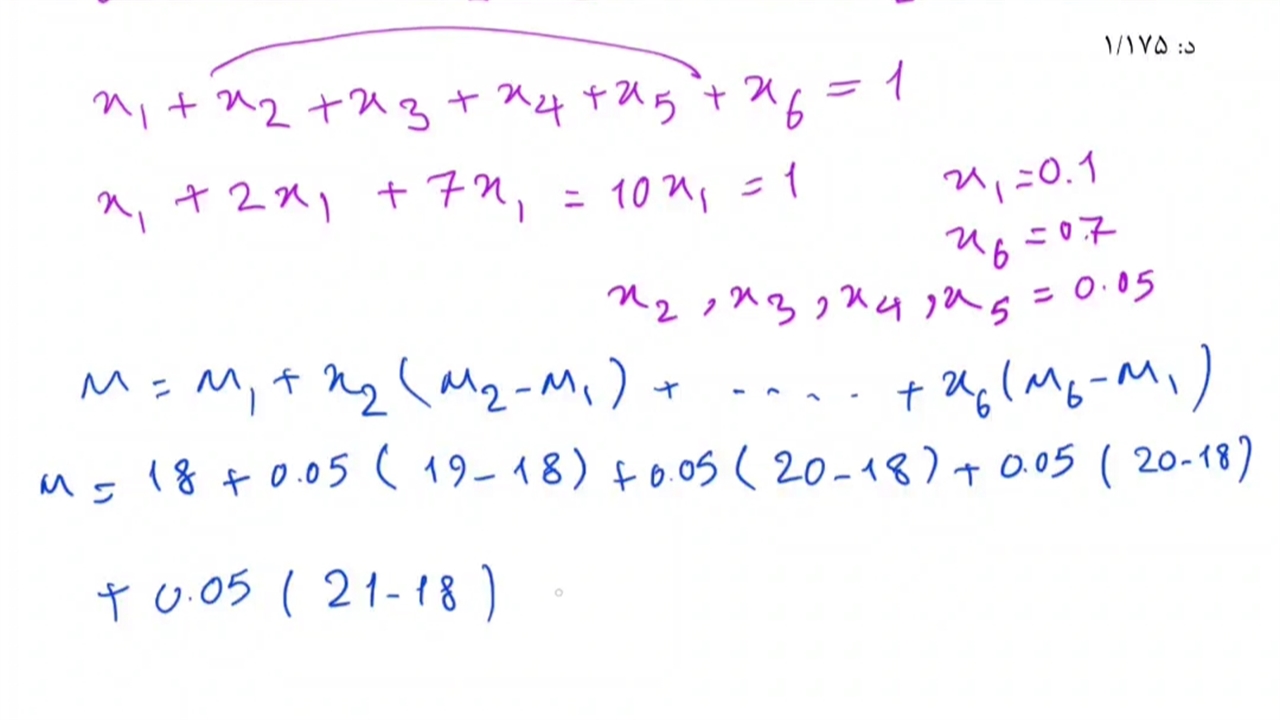 د: ۱/۱۷۵
x₁ + x₂ + x₃ + x₄ + x₅ + x₆ = 1
x₁ + 2x₁ + 7x₁ = 10x₁ = 1
x₁ = 0.1
x₆ = 0.7
x₂ , x₃ , x₄ , x₅ = 0.05
M = M₁ + x₂ (M₂ - M₁) + ..... + x₆ (M₆ - M₁)
M = 18 + 0.05 ( 19 - 18) + 0.05 ( 20 - 18) + 0.05 ( 20 - 18)
+ 0.05 ( 21 - 18 )